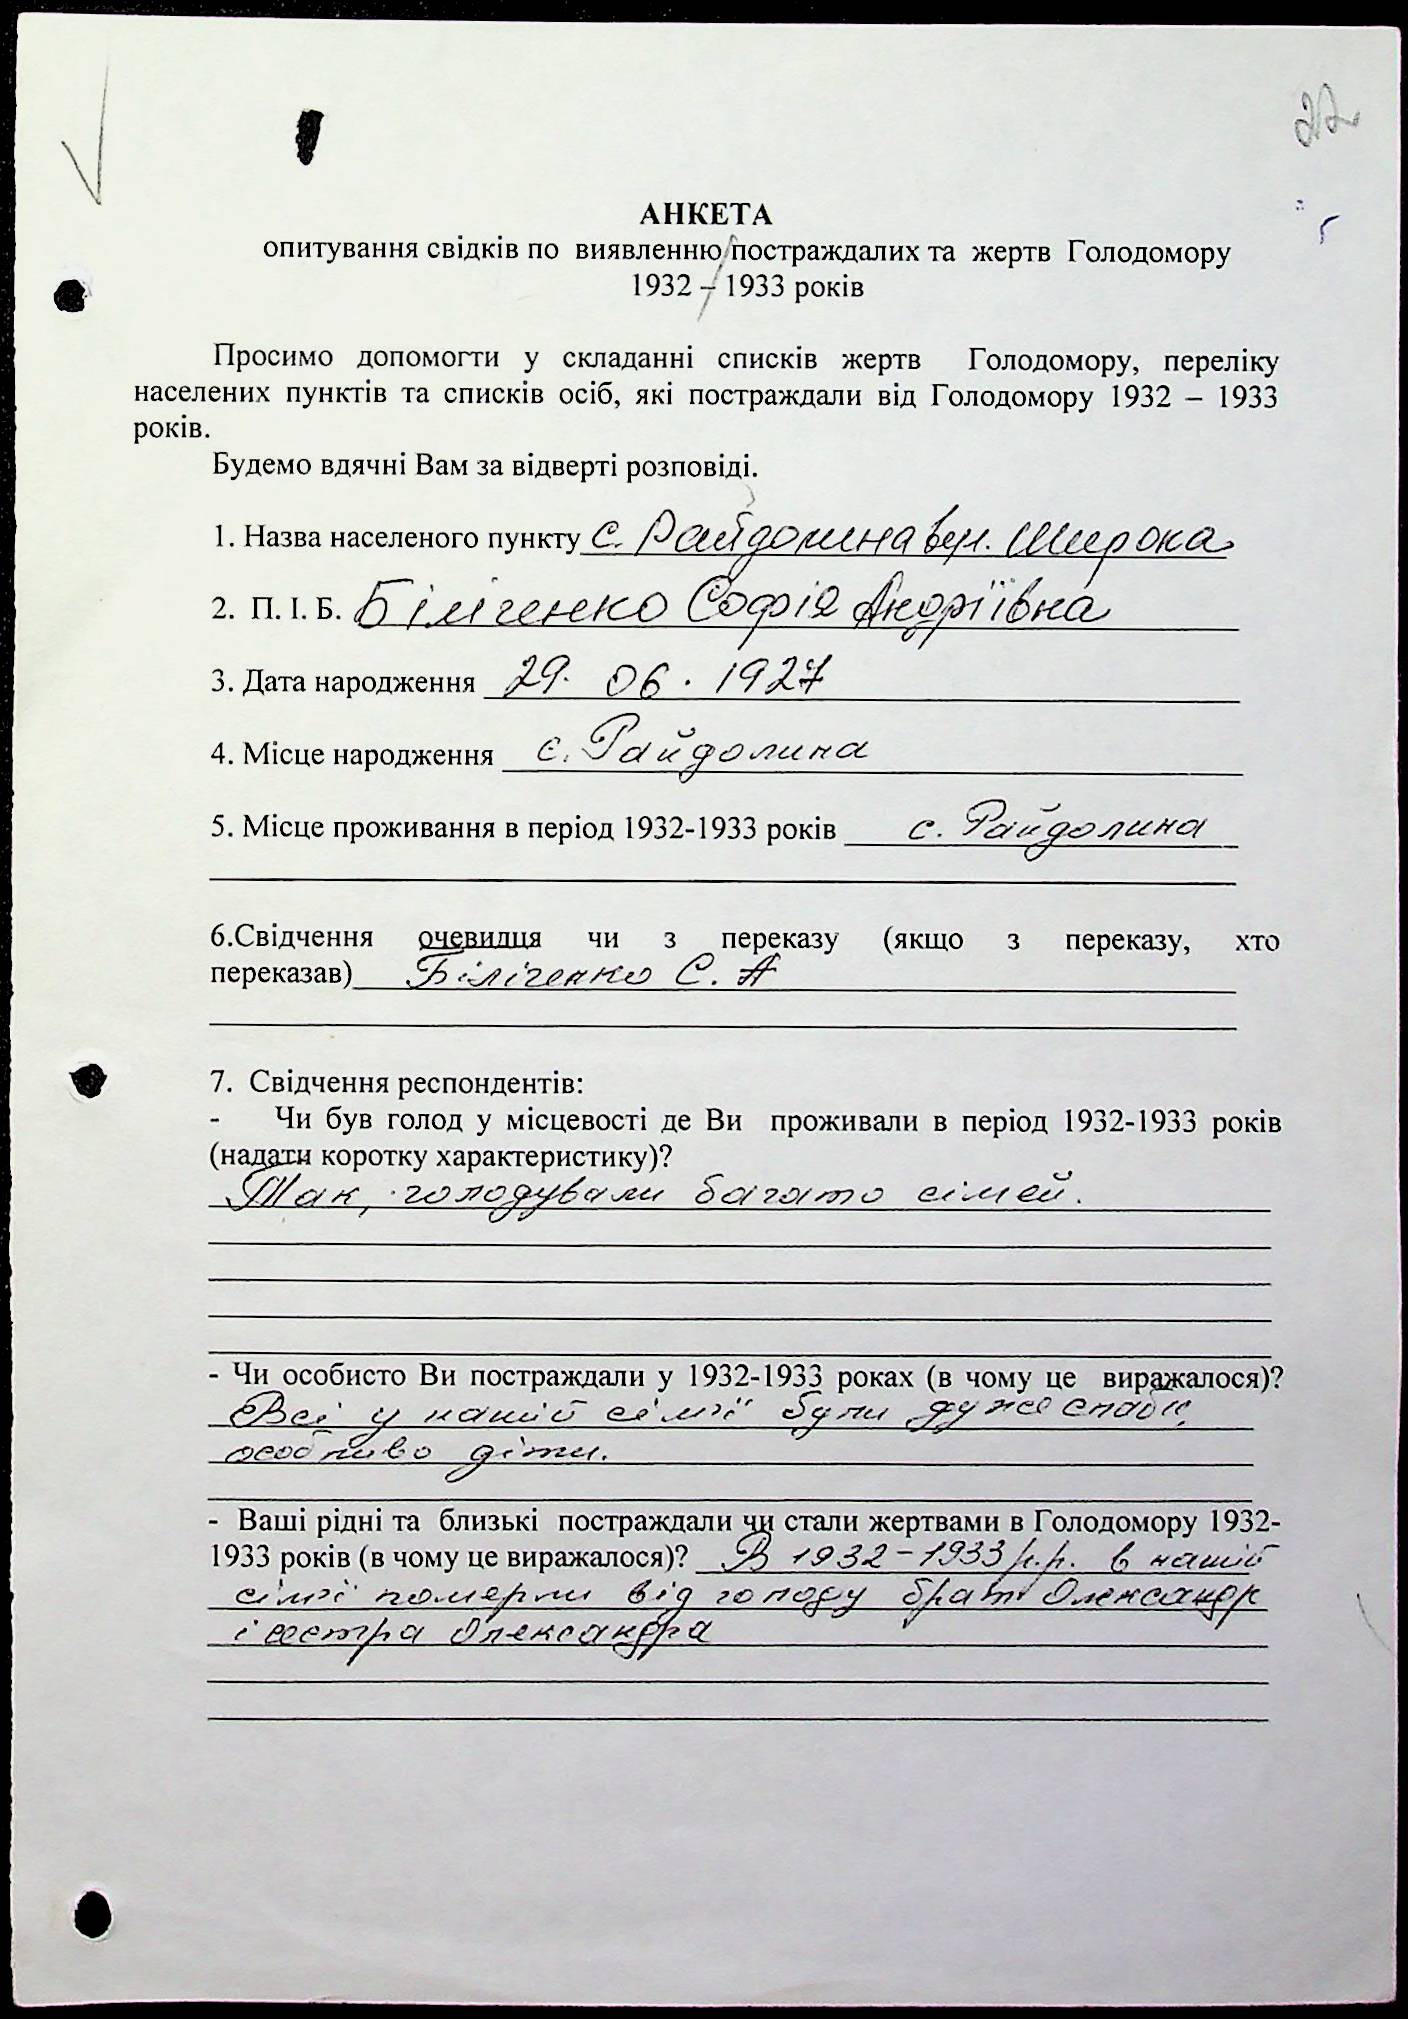 22
АНКЕТА
опитування свідків по виявленню постраждалих та жертв Голодомору
1932 – 1933 років
Просимо допомогти у складанні списків жертв Голодомору, переліку
населених пунктів та списків осіб, які постраждали від Голодомору 1932 – 1933
років.
Будемо вдячні Вам за відверті розповіді.
1. Назва населеного пункту с. Райдолина вул. Широка
2. П. І. Б. Біліченко Софія Андріївна
3. Дата народження 29. 06. 1927
4. Місце народження с. Райдолина
5. Місце проживання в період 1932-1933 років с. Райдолина
6.Свідчення очевидця чи з переказу (якщо з переказу, хто
переказав) Біліченко С. А
7. Свідчення респондентів:
- Чи був голод у місцевості де Ви проживали в період 1932-1933 років
(надати коротку характеристику)?
Так, голодували багато сімей.
- Чи особисто Ви постраждали у 1932-1933 роках (в чому це виражалося)?
Всі у нашій сім'ї були дуже слабі,
особливо діти.
- Ваші рідні та близькі постраждали чи стали жертвами в Голодомору 1932-
1933 років (в чому це виражалося)? В 1932-1933 р.р. в нашій
сім'ї померли від голоду брат Олександр
і сестра Олександра